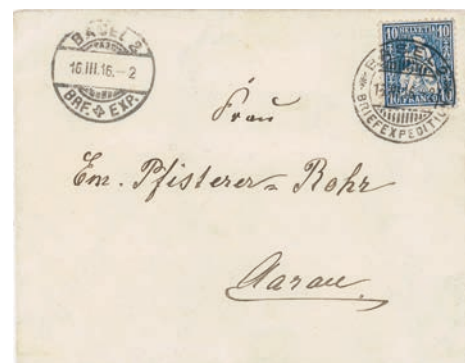 BASEL 2
16.III.16.–2
BRF. EXP.
HELVETIA
10 10
FRANCO
BASEL 2
BRIEFEXPEDITION
Frau
Em. Pfisterer-Rohr
Aarau.